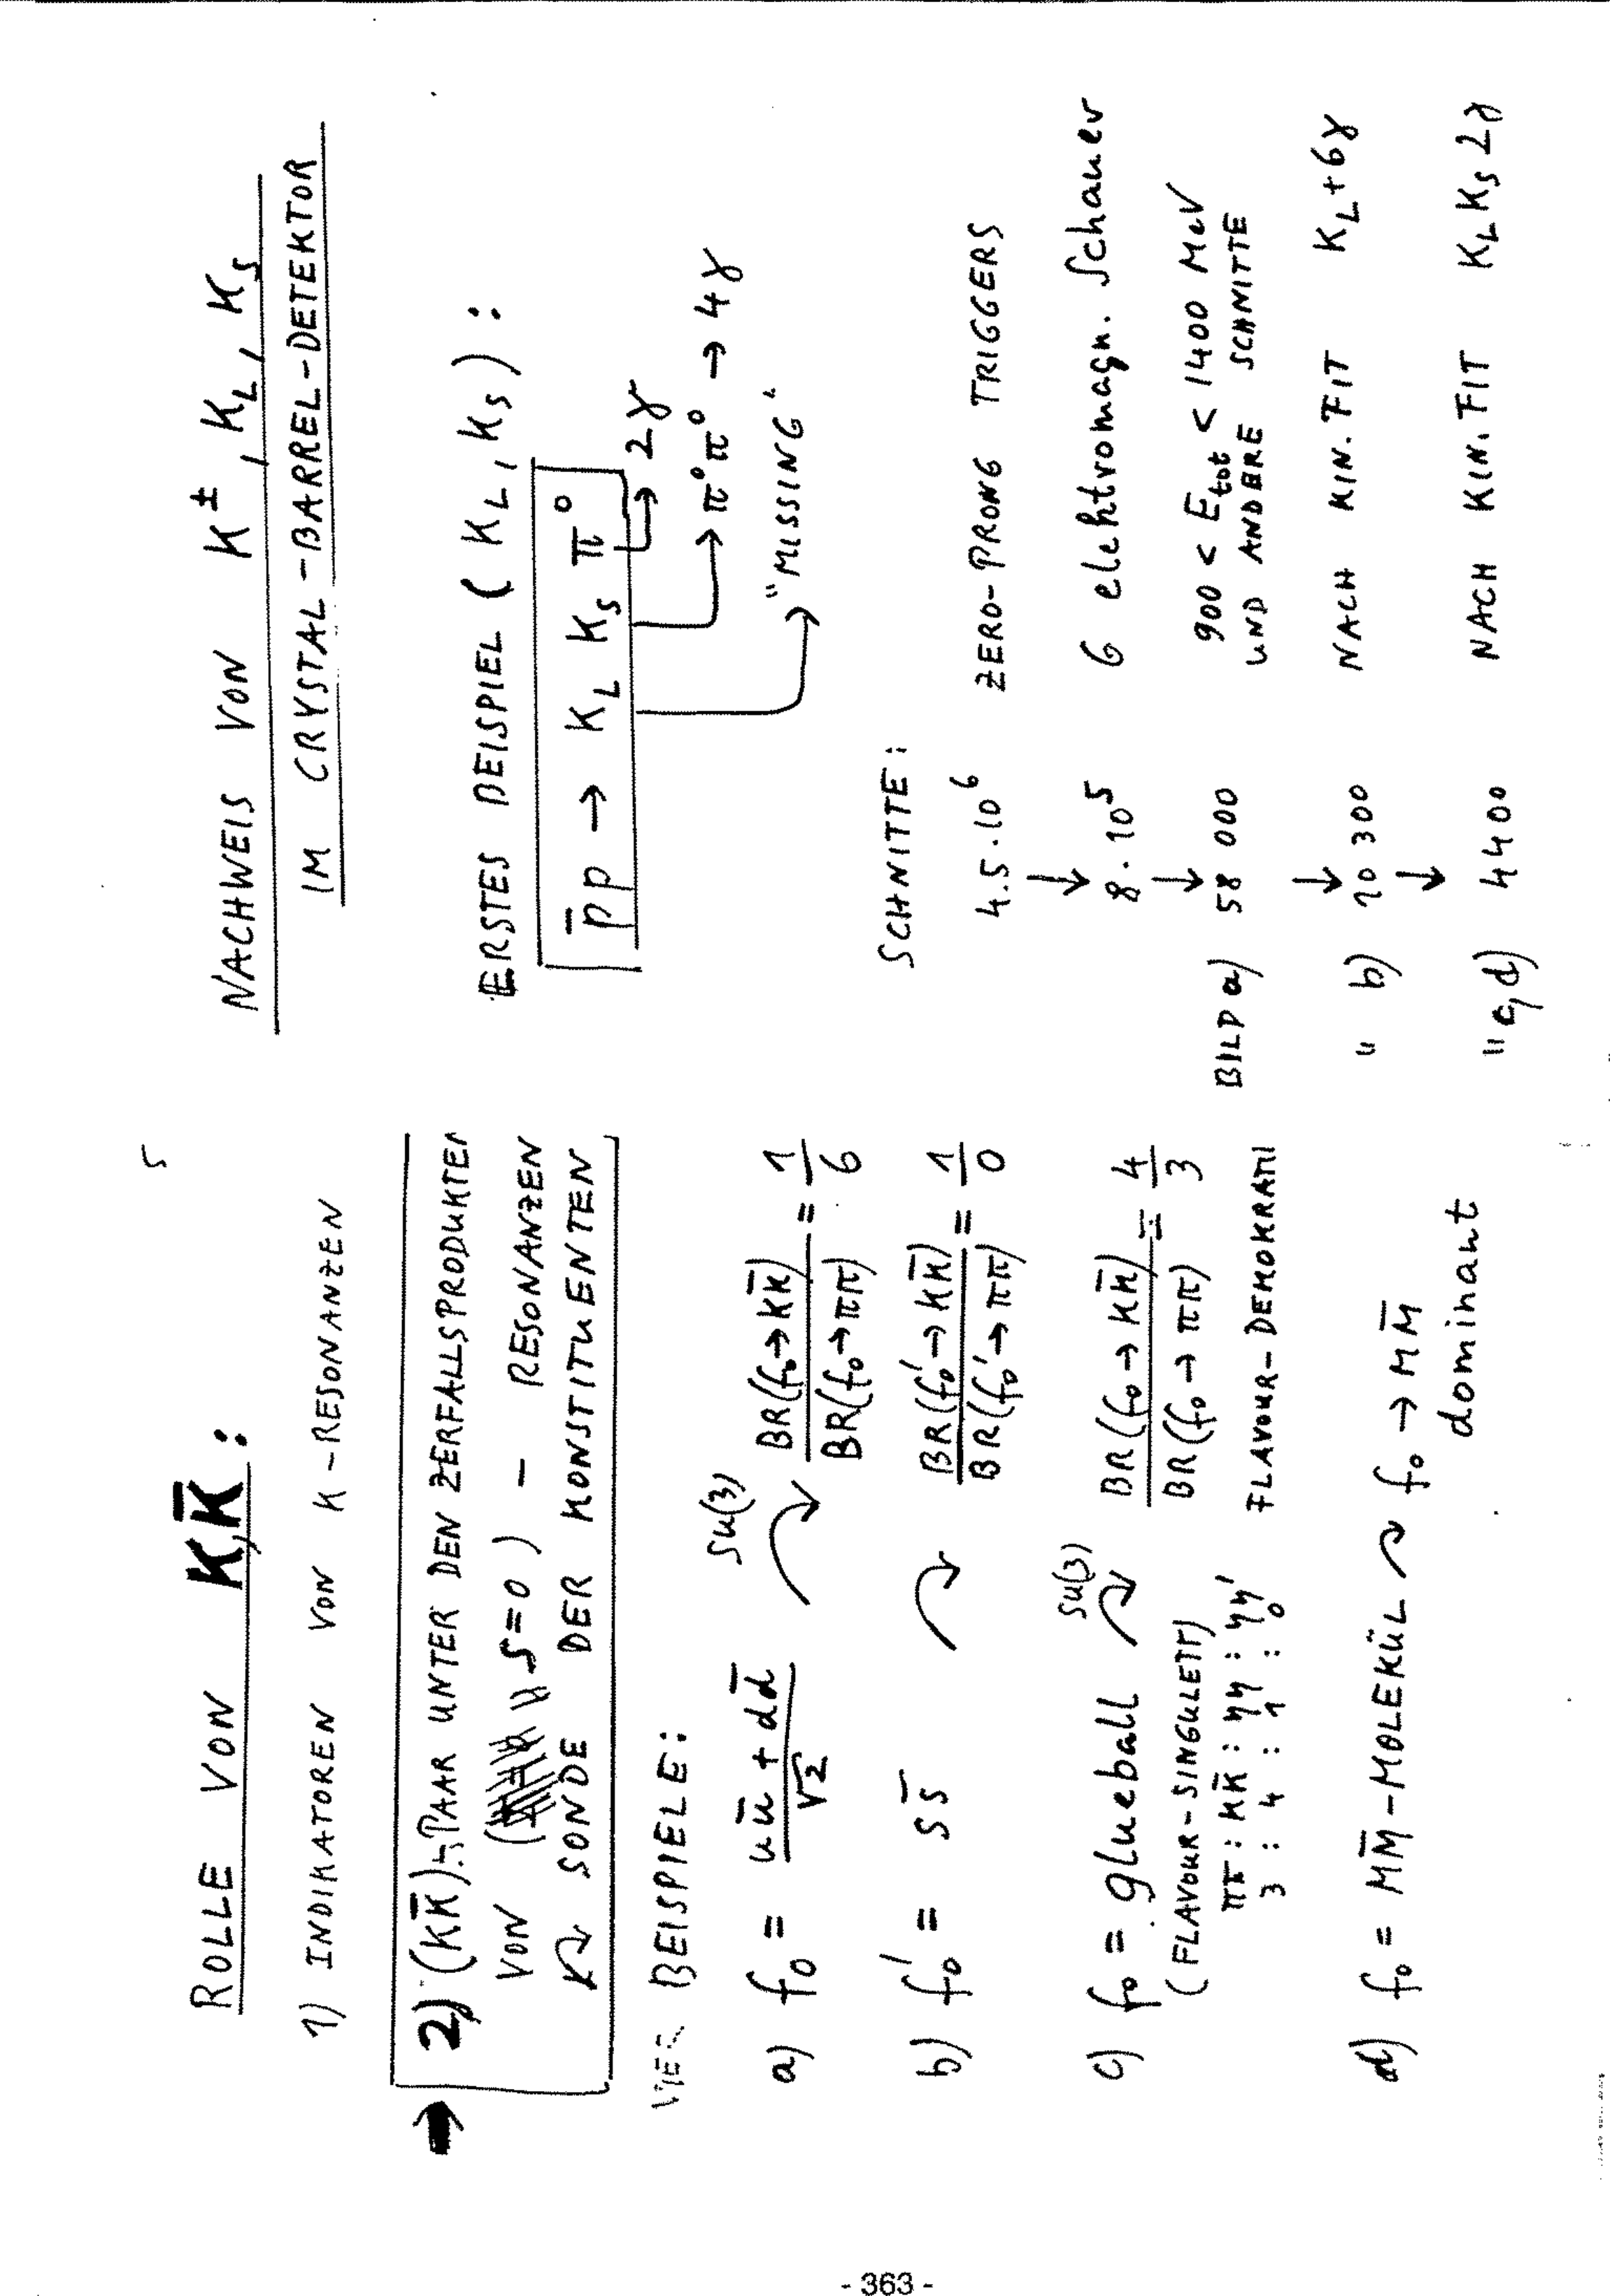 5
ROLLE VON K,K̄:
1) INDIKATOREN VON K-RESONANZEN
2) (KK̄)-PAAR UNTER DEN ZERFALLSPRODUKTEN
VON ( S=0 ) - RESONANZEN
↷ SONDE DER KONSTITUENTEN
VIER BEISPIELE:
a) f₀ = (uū + dd̄)/√2 SU(3) ↷ BR(f₀→KK̄)/BR(f₀→ππ) = 1/6
b) f₀' = s s̄ ↷ BR(f₀'→KK̄)/BR(f₀'→ππ) = 1/0
c) f₀ = glueball SU(3) ↷ BR(f₀→KK̄)/BR(f₀→ππ) = 4/3
(FLAVOUR-SINGULETT)
ππ : KK̄ : ηη : ηη' FLAVOUR-DEMOKRATIE
3 : 4 : 1 : 0
d) f₀ = MM̄-MOLEKÜL ↷ f₀ → MM̄
dominant
NACHWEIS VON K±, K_L, K_S
IM CRYSTAL-BARREL-DETEKTOR
ERSTES BEISPIEL (K_L, K_S):
p̄p → K_L K_S π⁰
→ 2γ
→ π⁰π⁰ → 4γ
→ "MISSING"
SCHNITTE:
4.5·10⁶ ZERO-PRONG TRIGGERS
↓
8·10⁵ 6 elektromagn. Schauer
↓
BILD a) 58 000 900 < E_tot < 1400 MeV
UND ANDERE SCHNITTE
↓
" b) 20 300 NACH KIN. FIT K_L+6γ
↓
" c,d) 4400 NACH KIN. FIT K_L K_S 2γ
- 363 -